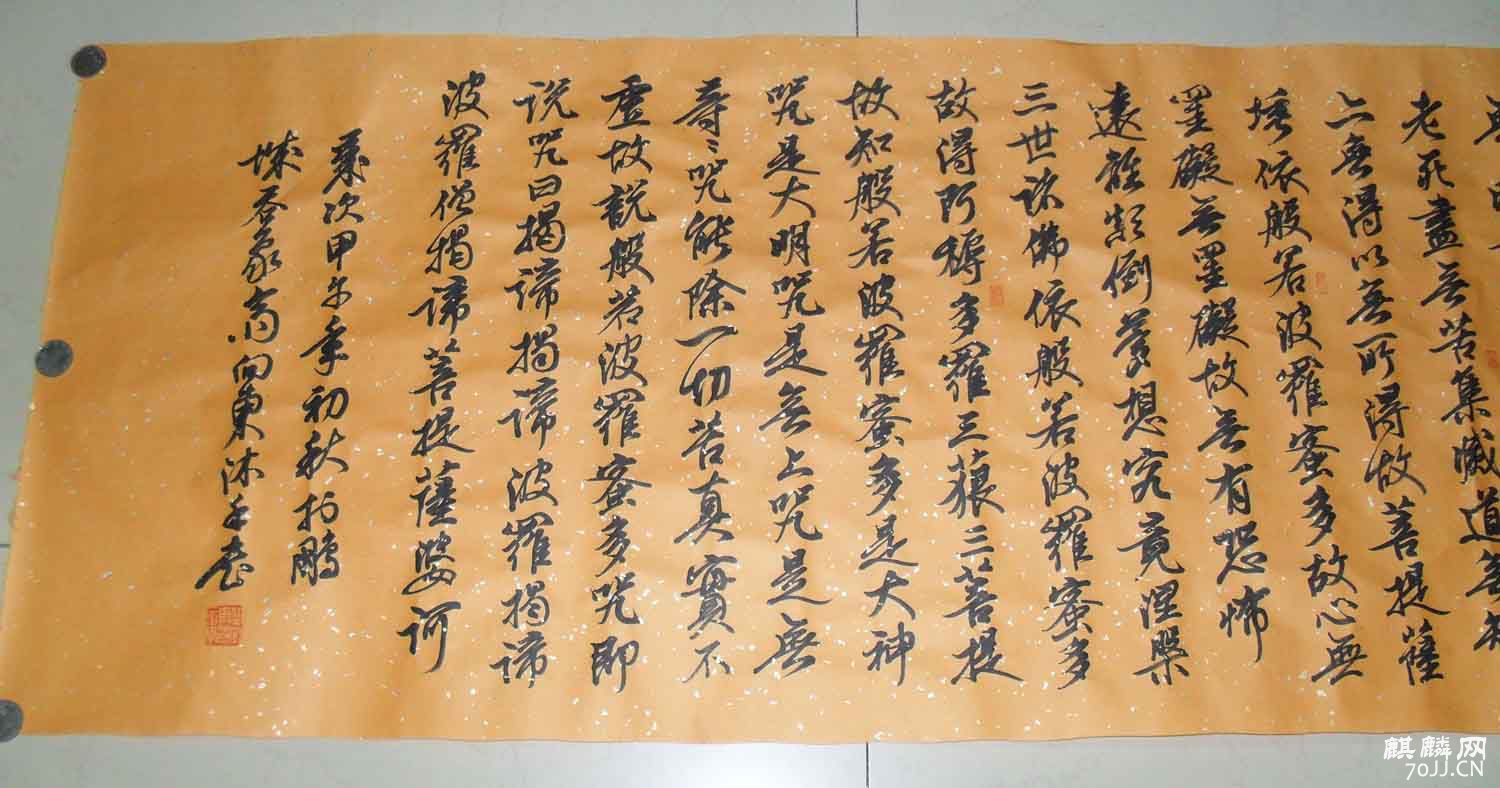 老死盡無苦集滅道無智
亦無得以無所得故菩提薩
埵依般若波羅蜜多故心無
罣礙無罣礙故無有恐怖
遠離顛倒夢想究竟涅槃
三世諸佛依般若波羅蜜多
故得阿耨多羅三藐三菩提
故知般若波羅蜜多是大神
咒是大明咒是無上咒是無
等等咒能除一切苦真實不
虛故説般若波羅蜜多咒即
说咒曰揭諦揭諦波羅揭諦
波羅僧揭諦菩提薩婆訶
歲次甲午年初秋於鵬
城 向東沐手書
麒麟网
70JJ.CN